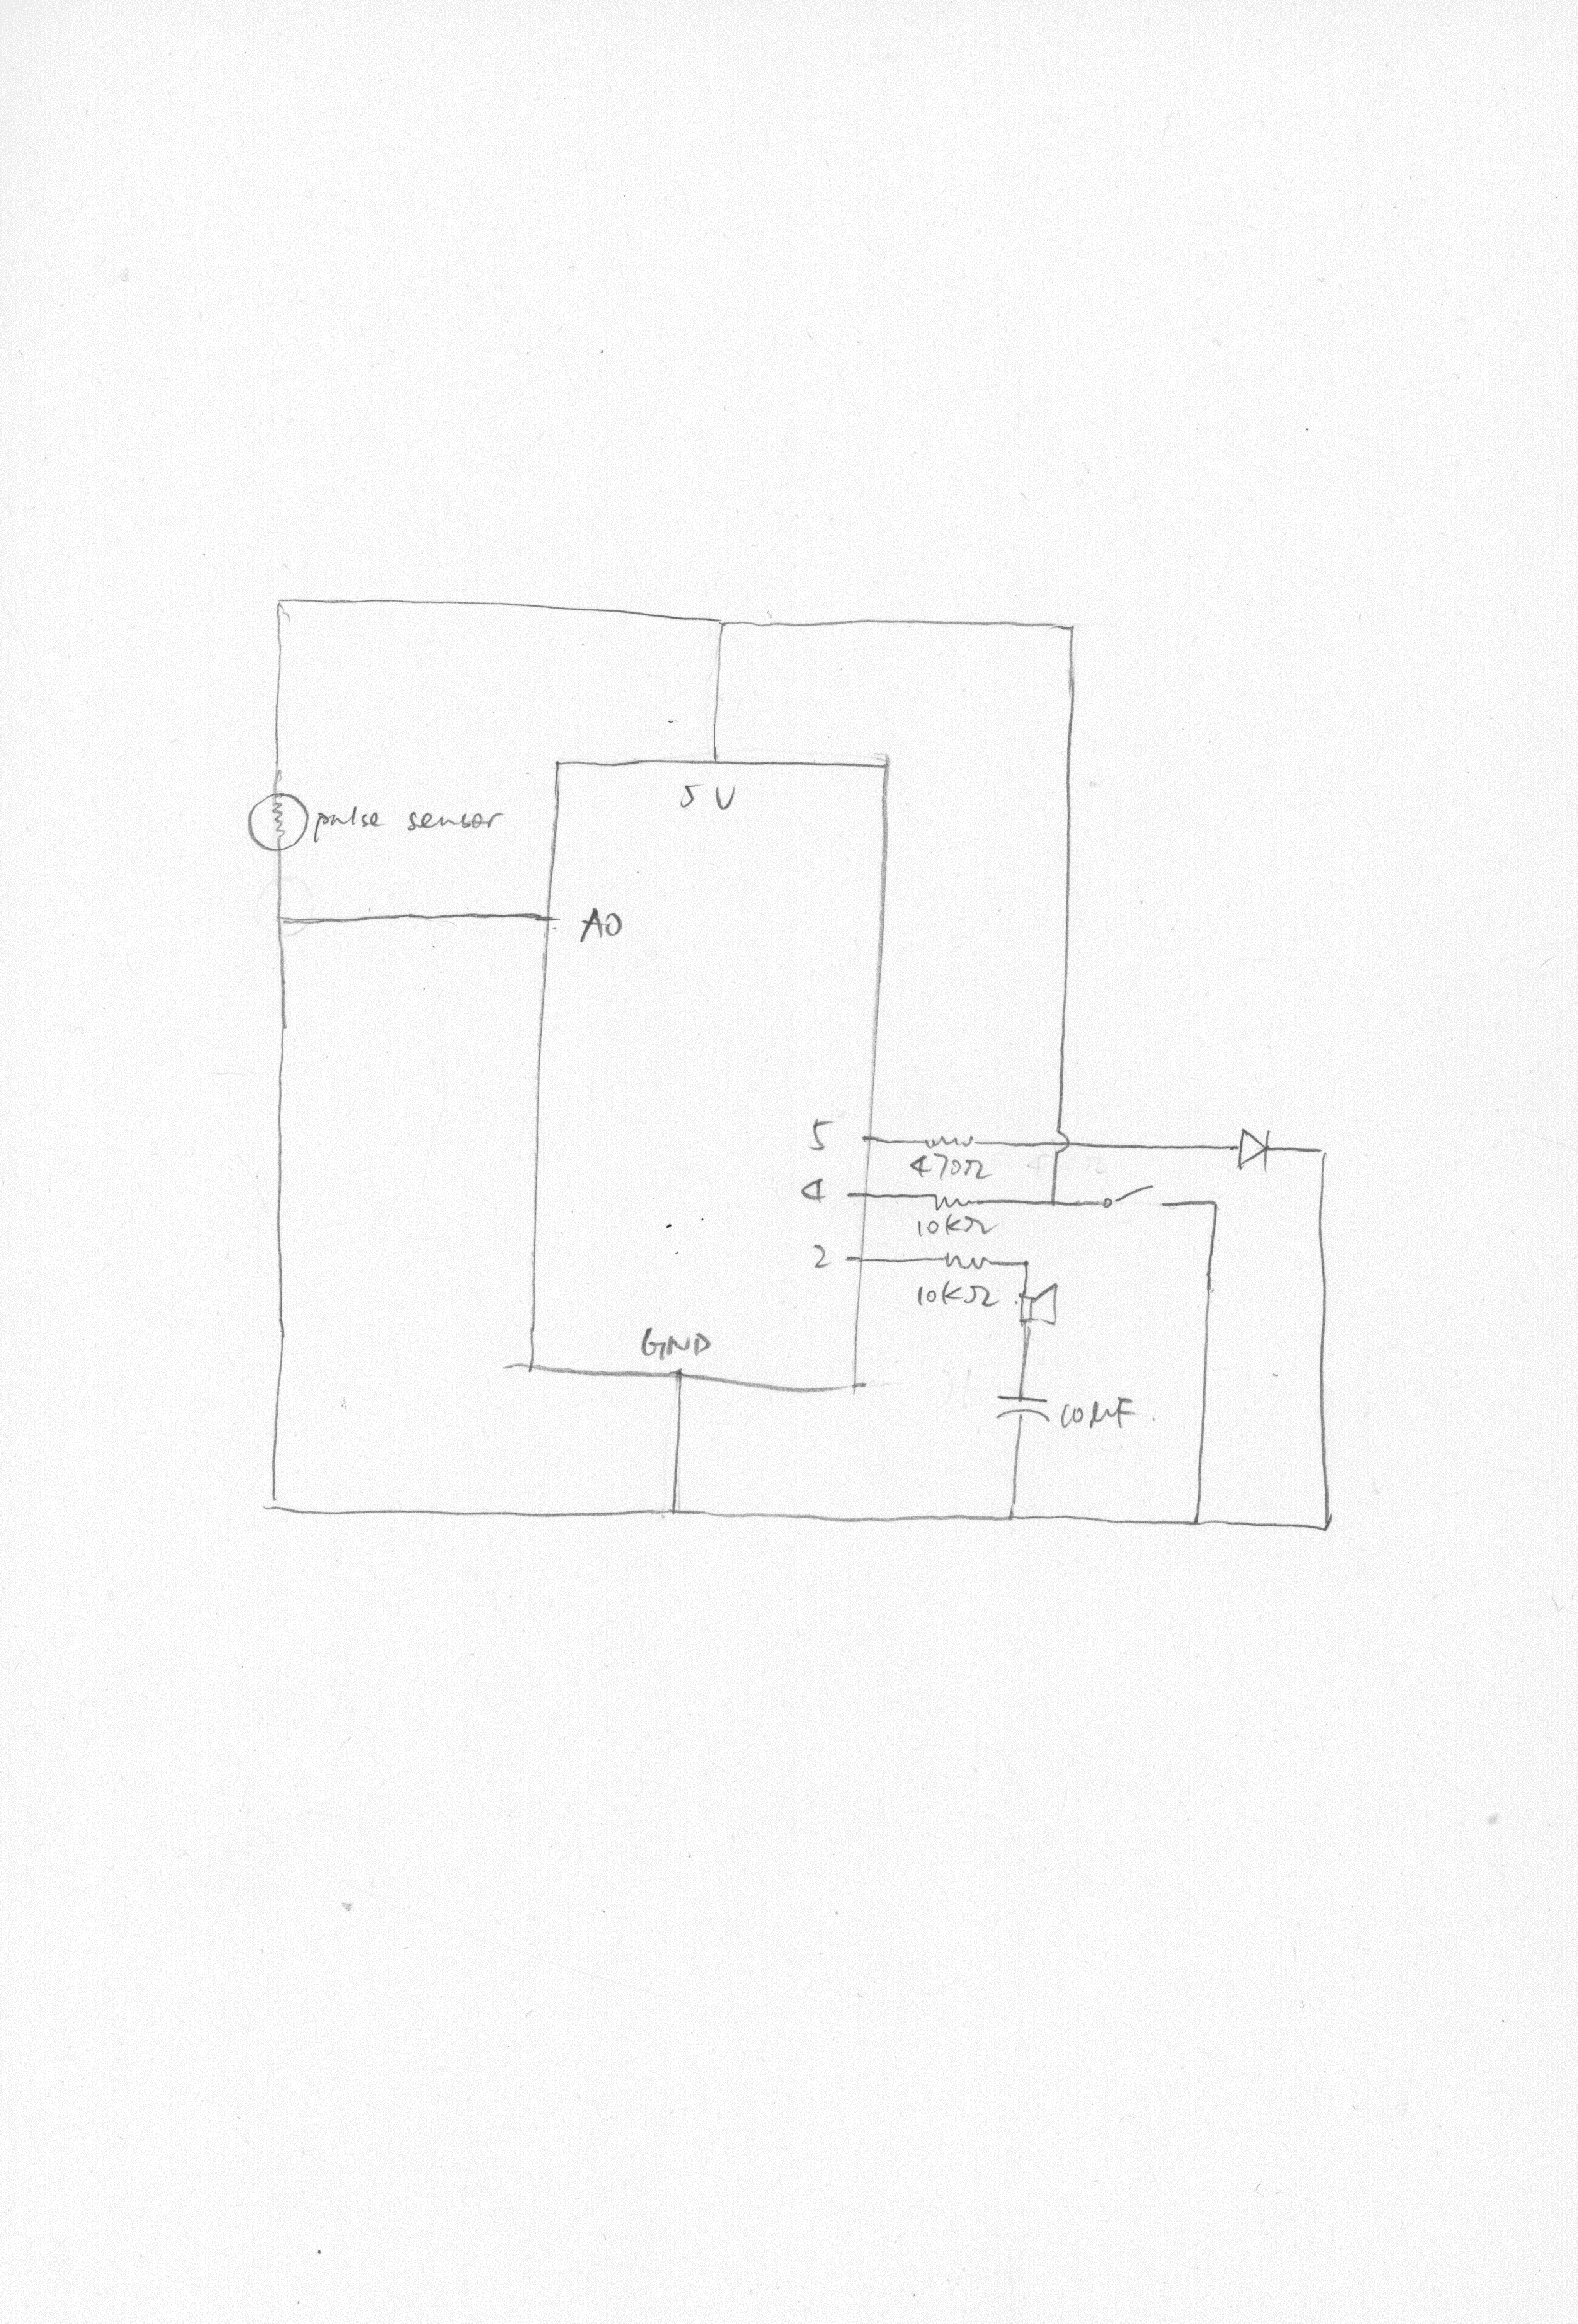 5V
pulse sensor
A0
5
470Ω
4
10KΩ
2
10KΩ
GND
10µF.